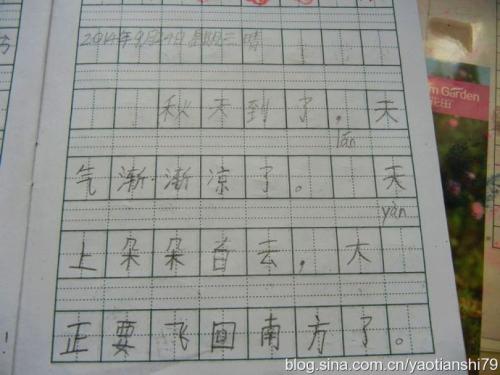 2014年9月24日 星期三 晴
秋天到了,天
lán
气渐渐凉了。 天
yàn
上朵朵白云,大
正要飞回南方了。
Garden
花田
blog.sina.com.cn/yaotianshi79